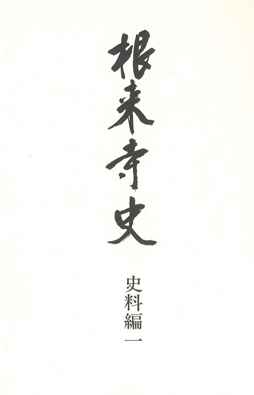 根来寺史
史料編一